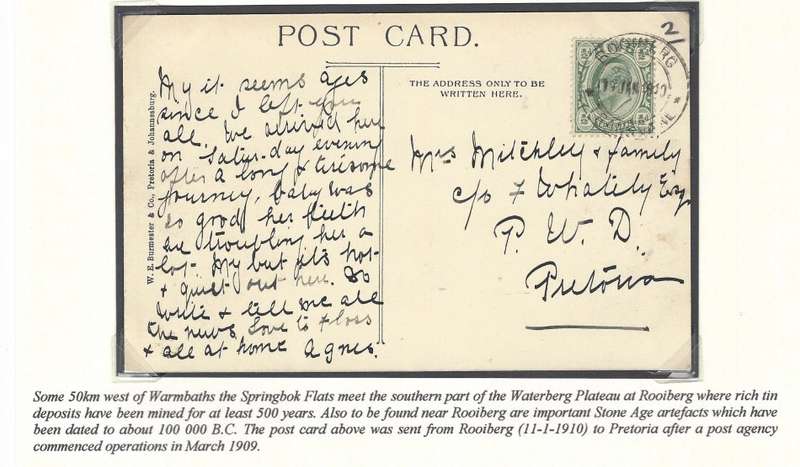 POST CARD.
2/
THE ADDRESS ONLY TO BE
WRITTEN HERE.
W. E. Burmester & Co., Pretoria & Johannesburg.
My it seems ages
since I left you
all. We arrived here
on Satur-day evening
after a long & tiresome
journey, baby was
so good her teeth
are troubling her a
lot. My but it's hot
& quiet out here. Do
write & tell me all
the news Love to Floss
& all at home Agnes.
Mrs Mitchley & family
c/o F Whatily Esq
P. W. D.
Pretoria
ROOIBERG
Some 50km west of Warmbaths the Springbok Flats meet the southern part of the Waterberg Plateau at Rooiberg where rich tin
deposits have been mined for at least 500 years. Also to be found near Rooiberg are important Stone Age artefacts which have
been dated to about 100 000 B.C. The post card above was sent from Rooiberg (11-1-1910) to Pretoria after a post agency
commenced operations in March 1909.